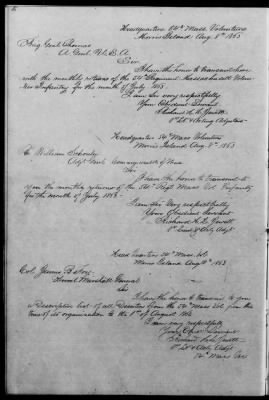 Headquarters 54th Mass. Volunteers
Morris Island Aug. 8th 1863
Brig. Genl. Thomas
A. Genl. U.S.A.
Sir
I have the honor to transmit here
with the monthly returns of the 54th Regiment Massachusetts Volun
teer Infantry for the month of July 1863
I am Sir very respectfully
Your Obedient Servant
Richard H. L. Jewett
1st Lt & Acting Adjutant
Headquarters 54th Mass Volunteers
Morris Island Aug. 8th 1863
To William Schouler
Adjt Genl. Commonwealth of Mass
Sir
I have the honor to transmit to
you the monthly returns of the 54th Regt Mass Vol Infantry
for the month of July 1863
I am Sir Very respectfully
Your Obedient Servant
Richard H. L. Jewett
1st Lieut & Actg Adjt
Head Quarters 54th Mass. Vol
Morris Island Aug 1863
Col. James B.
Provost Marshall General
Sir
I have the honor to transmit to you
a Descriptive list of all Deserters from the 54th Mass Vol from the
time of its organization to the 1st of August 1863
I am very respectfully
Your Obt Servant
Richard H. L. Jewett
1st Lt & Actg Adjt
54th Mass Vols